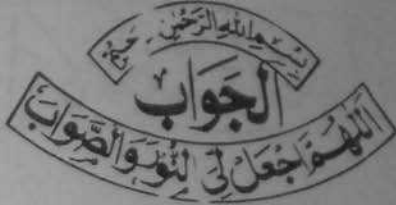 بِسْمِ اللهِ الرَّحْمٰنِ
الجَوَاب
اَللّٰهُمَّ اجْعَلْ لِّي النُّوْرَ وَالصَّوَابَ